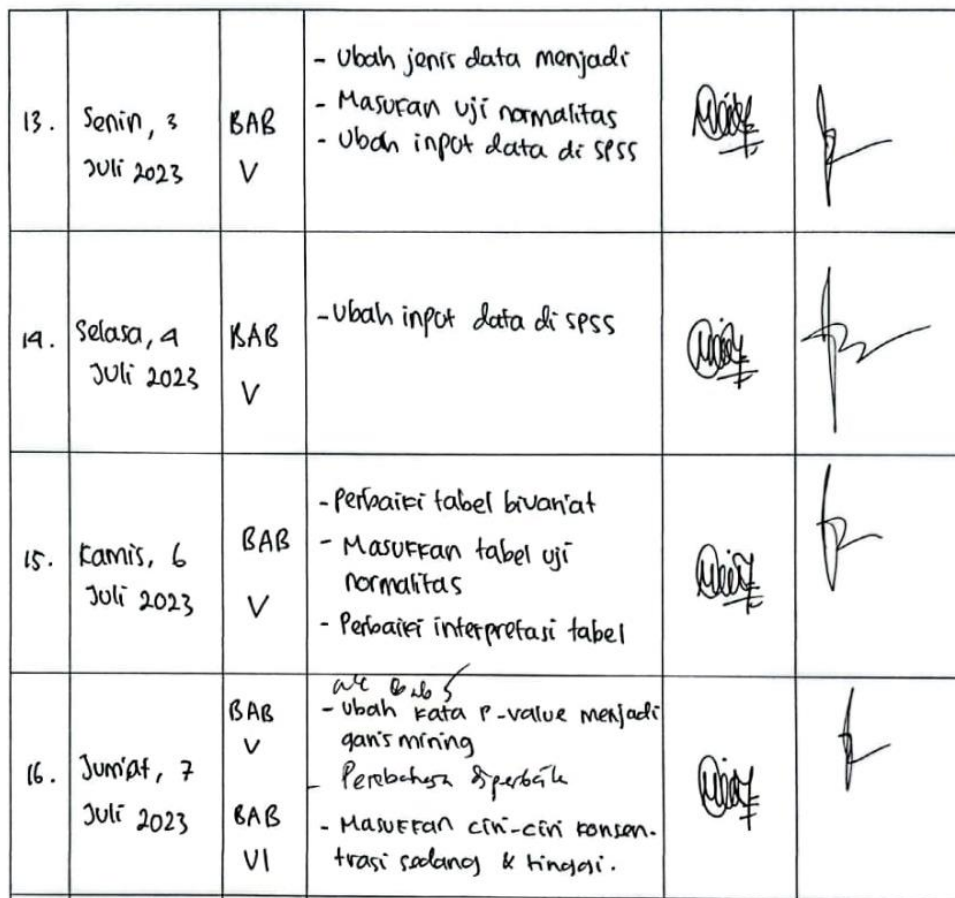 13.
Senin, 3
Juli 2023
BAB
V
- Ubah jenis data menjadi
- Masukan uji normalitas
- Ubah input data di SPSS
14.
Selasa, 4
Juli 2023
BAB
V
- Ubah input data di SPSS
15.
Kamis, 6
Juli 2023
BAB
V
- Perbaiki tabel bivariat
- Masukkan tabel uji
normalitas
- Perbaiki interpretasi tabel
16.
Jum'at, 7
Juli 2023
BAB
V
BAB
VI
acc Bab 5
- Ubah kata P-value menjadi
garis miring
-
- Masukkan ciri-ciri konsen-
trasi sedang & tinggi.